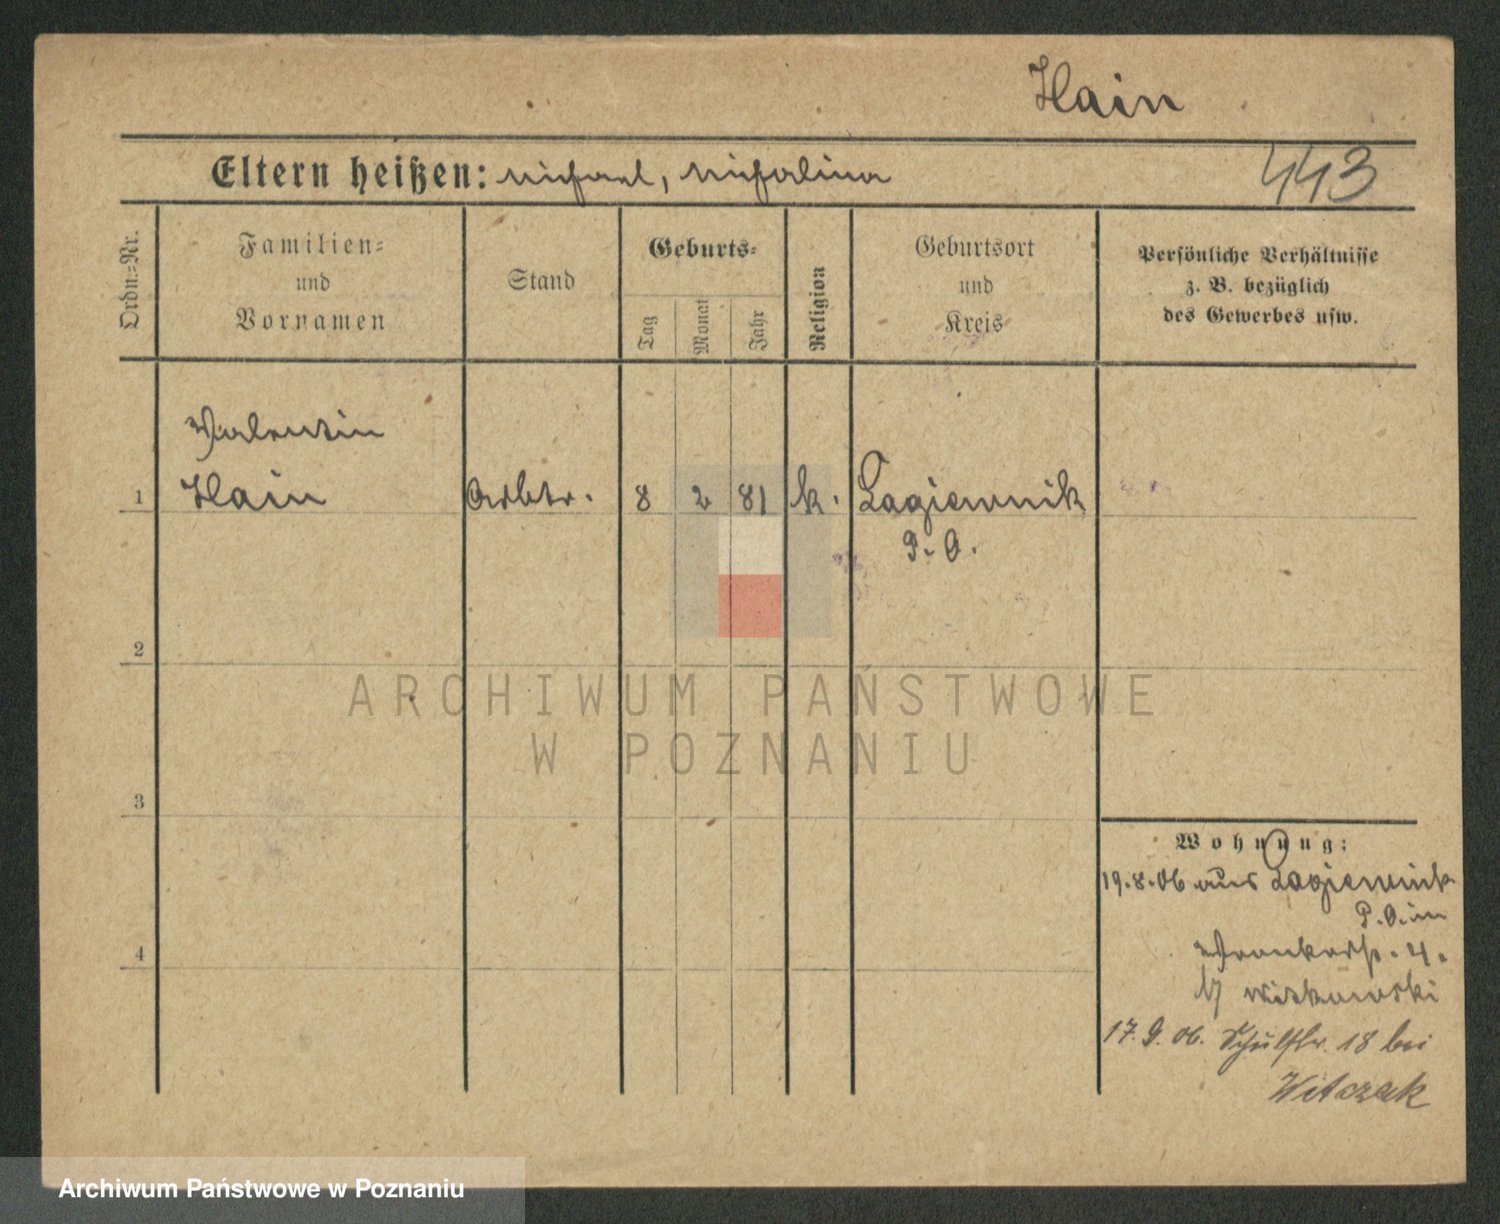 Hain
Eltern heißen: Michael, Michalina
443
Ordn.=Nr.
Familien=
und
Vornamen
Stand
Geburts=
Tag
Monat
Jahr
Religion
Geburtsort
und
Kreis
Persönliche Verhältnisse
z. B. bezüglich
des Gewerbes usw.
Valentin
1 Hain Arbtr. 8 2 81 k. Lagiewnik
P. O.
2
3
4
ARCHIWUM PAŃSTWOWE
W POZNANIU
Wohnung:
19.8.06 aus Lagiewnik
P. O. in
Wronkerstr. 4.
b/ Witkowski
17.9.06. Schulstr. 18 bei
Witczak
Archiwum Państwowe w Poznaniu